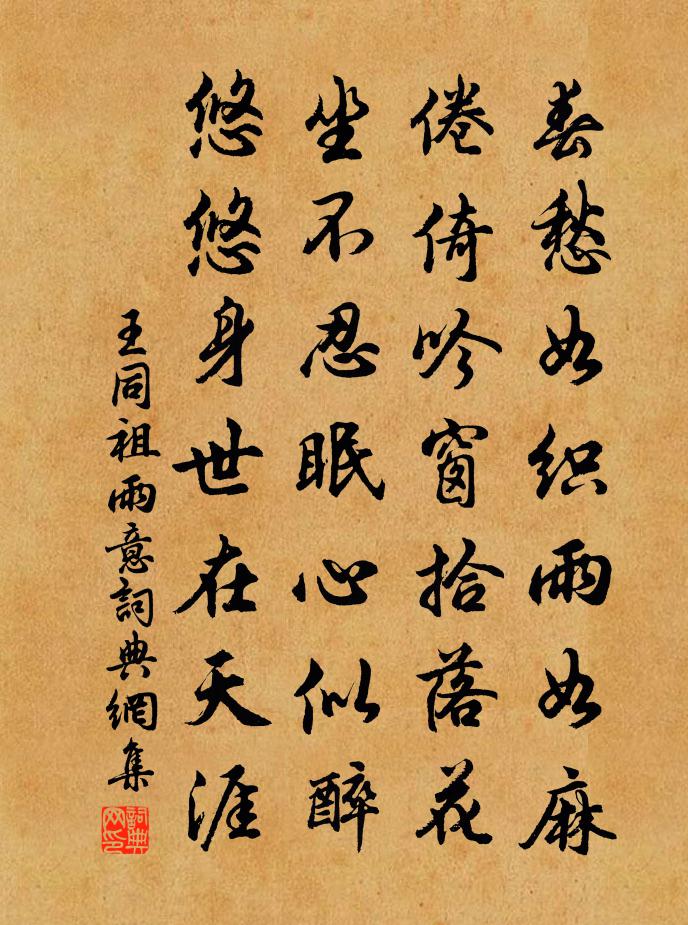 春愁如织雨如麻
倦倚吟窗拾落花
坐不忍眠心似醉
悠悠身世在天涯
王同祖雨意詞典網集
詞典网印